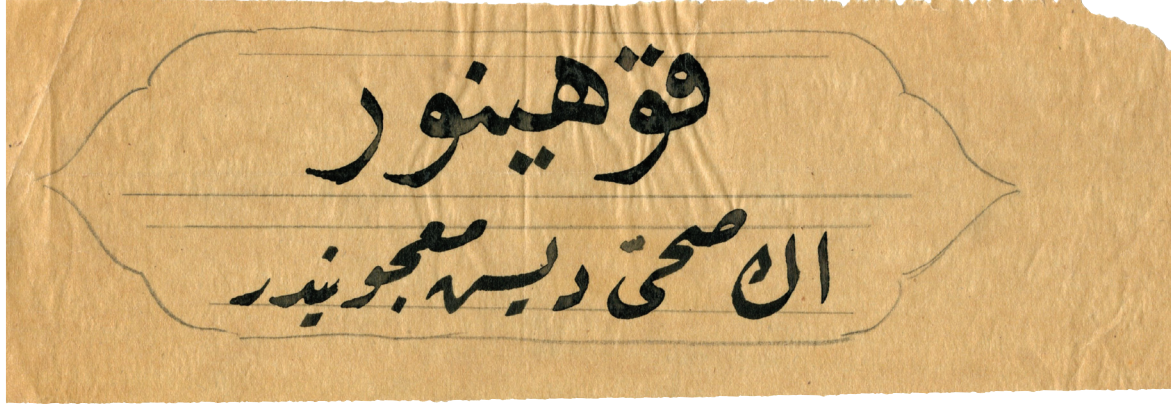 قوهينور
اك صحّی دیس معجونیدر